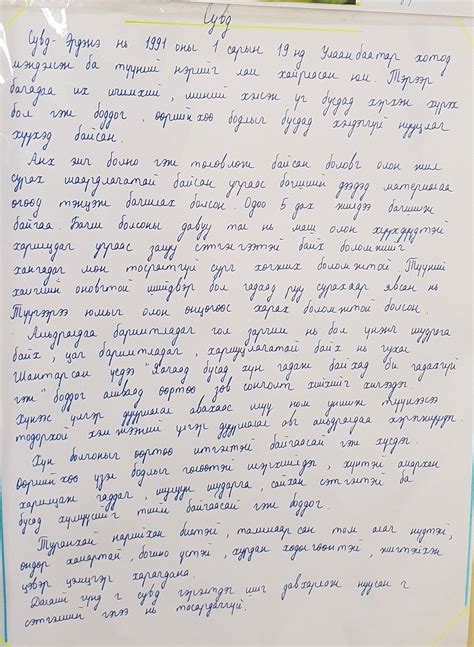 Сувд
Сувд-Эрдэнэ нь 1991 оны 1 сарын 19 нд Улаанбаатар хотод
мэндэлсэн ба түүний нэрийг лам хайрласан юм. Тэрээр
багадаа их ичимхий, миний хэлсэн үг бусдад хэрхэн хүрэх
бол гэж боддог, өөрийнхөө бодлыг бусдад хэлдэггүй нууцлаг
хүүхэд байсан.
Анх эмч болно гэж төлөвлөж байсан боловч олон жил
сурах шаардлагатай байсан учраас багшийн дээдэд материалаа
өгөөд тэнцэж багшлах болсон. Одоо 5 дах жилдээ багшилж
байгаа. Багш болсоны давуу тал нь маш олон хүүхдүүдтэй
харилцдаг учраас залуу сэтгэлгээтэй байх боломжийг
хангадаг мөн тасралтгүй сурч хөгжих боломжтой. Түүний
хамгийн оновчтой шийдвэр бол гадаад руу сурахаар явсан нь
Түүгээрээ юмыг олон өнцөгөөс харах боломжтой болсон.
Амьдралдаа баримтладаг гол зарчим нь бол үнэнч шударга
байх, цаг баримтладаг, хариуцлагатай байх нь чухал
Шантарсан үедээ "Яагаад бусад хүн чадаж байхад би чадахгүй
гэж" боддог амваад өөртөө зөв сонголт хийхийг хичээдэг.
Хүнээс үлгэр дуурайлал авахаас илүү ном уншиж түүнээсээ
тодорхой хэмжээний үлгэр дуурайлал авч амьдралдаа хэрэгжүүлдэг.
Хүн болгоныг өөртөө итгэлтэй байгаасай гэж хүсдэг.
Өөрийнхөө үзэл бодлыг чөлөөтэй илэрхийлдэг, хүнтэй амархан
харилцаж чаддаг, шулуун шударга, сайхан сэтгэлтэй ба
бусад хүмүүсийг тийм байгаасай гэж боддог.
Туранхай нарийхан биетэй, тамлагарсан том алаг нүдтэй,
өндөр хамартай, богино үстэй, хурдан хөдөлгөөнтэй, жижигхэн
цэвэр цэмцгэр харагдана.
Далайн гүнд ч сувд гэрэлтдэг шиг давхарлаж нуусан ч
сэтгэлийн гэгээ нь тасардаггүй.